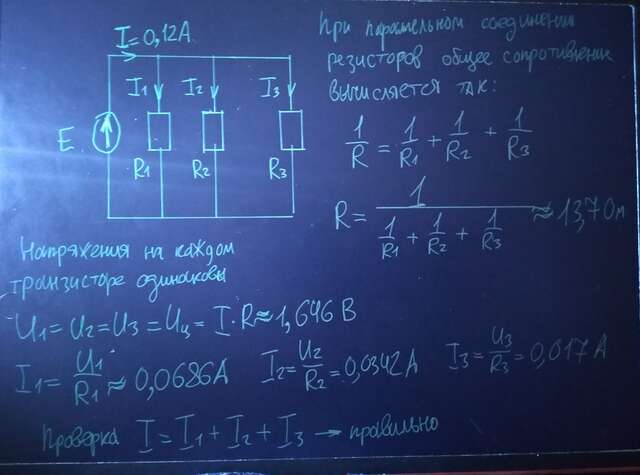 I=0,12А
I1 I2 I3
E
R1 R2 R3
При параллельном соединении
резисторов общее сопротивление
вычисляется так:
1/R = 1/R1 + 1/R2 + 1/R3
R = 1/(1/R1 + 1/R2 + 1/R3) ≈ 13,7 Ом
Напряжения на каждом
транзисторе одинаковы
U1 = U2 = U3 = Uц = I·R ≈ 1,646 В
I1 = U1/R1 ≈ 0,0686А I2 = U2/R2 = 0,0342 А I3 = U3/R3 = 0,017 А
Проверка I = I1 + I2 + I3 → правильно